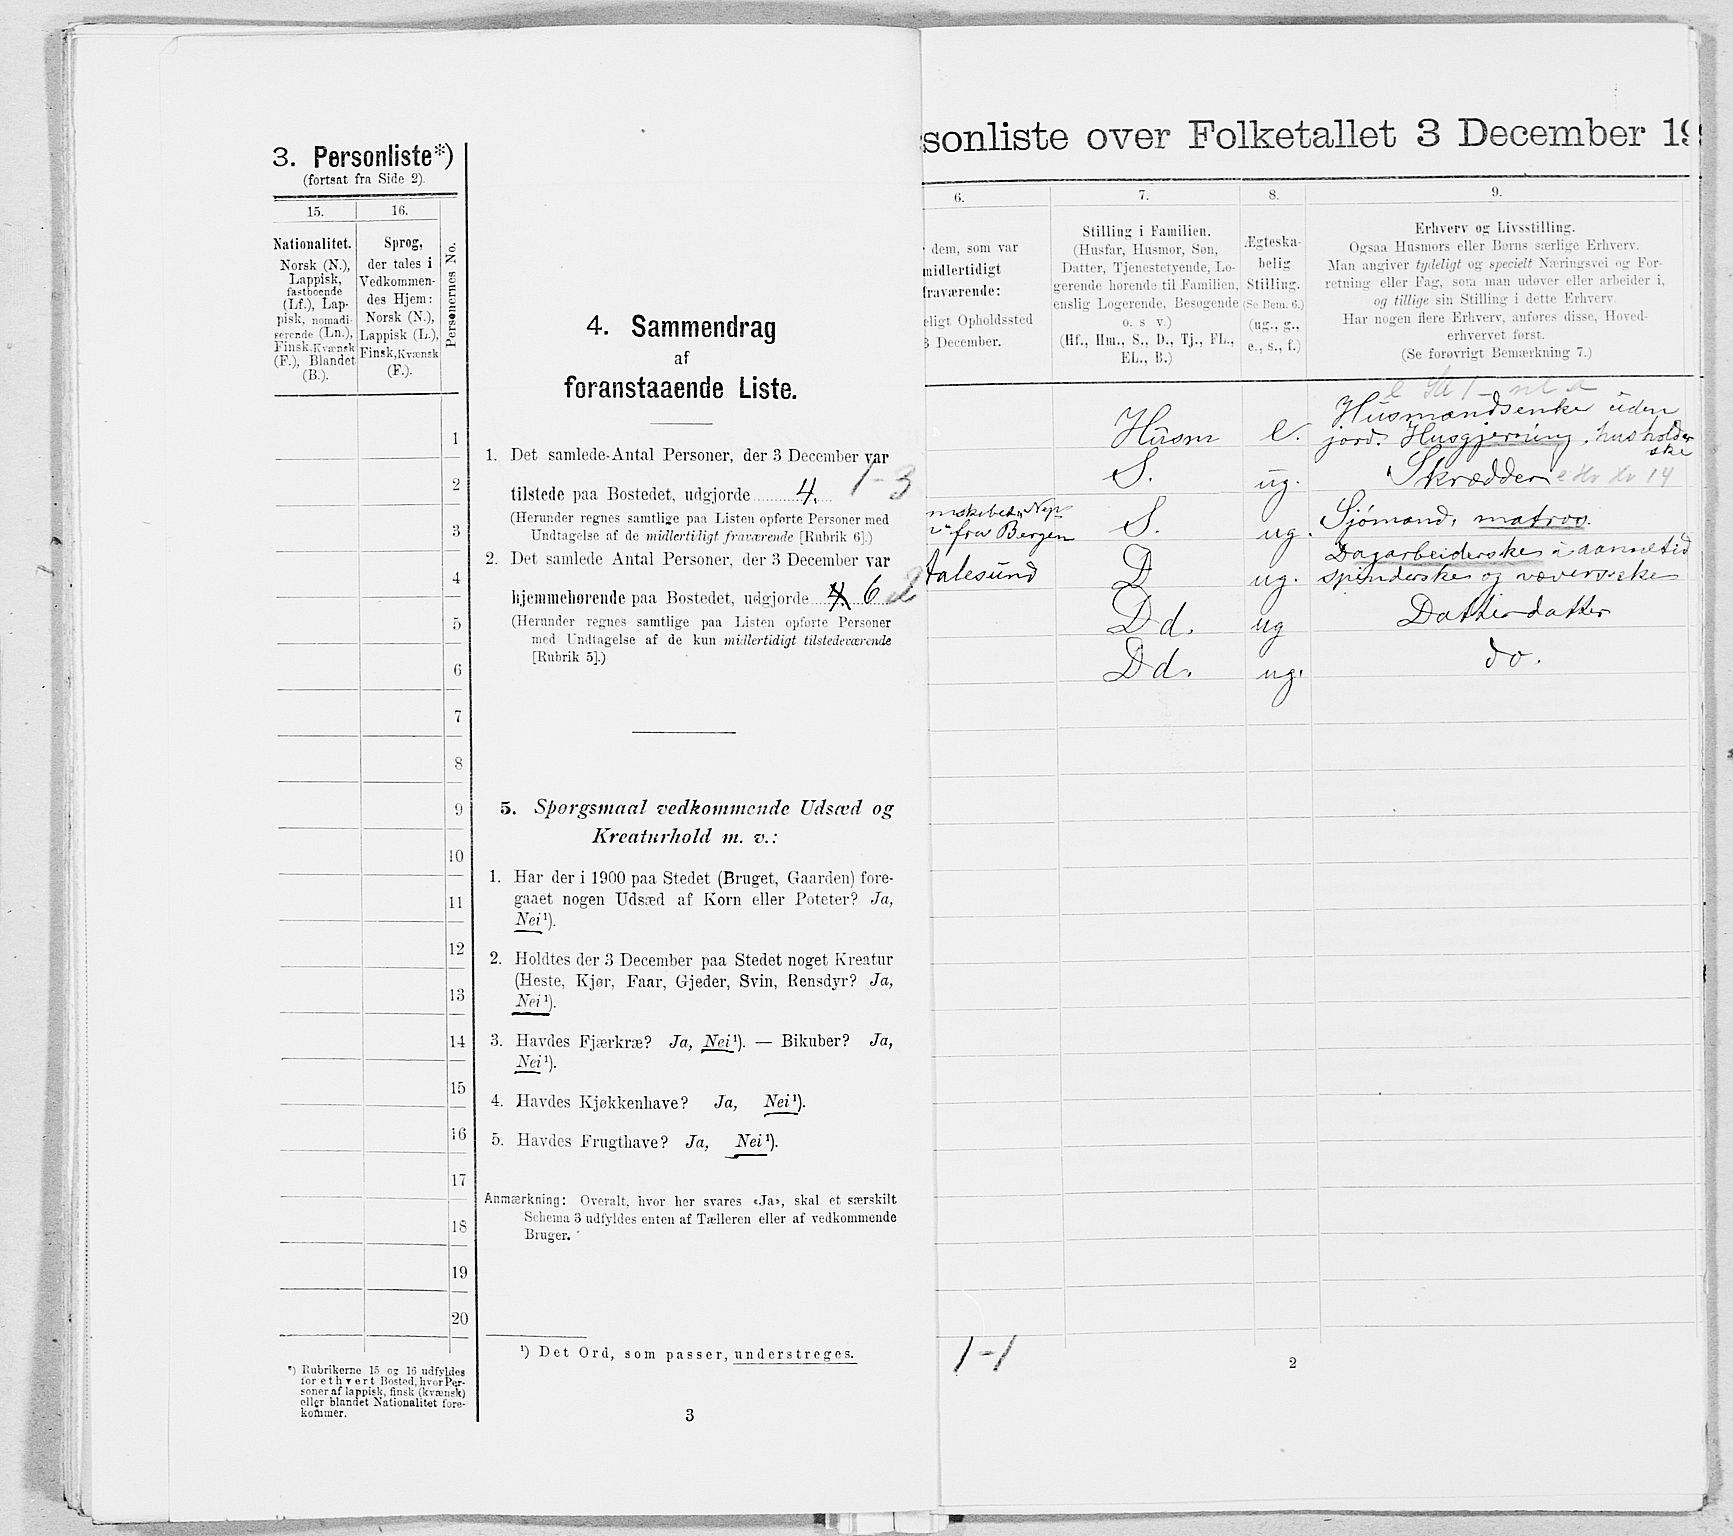 3. Personliste*)
(fortsat fra Side 2).
15.
16.
Nationalitet.
Norsk (N.),
Lappisk,
fastboende
(Lf.), Lap-
pisk, nomadi-
serende (Ln.),
Finsk, Kvænsk
(F.), Blandet
(B.).
Sprog,
der tales i
Vedkommen-
des Hjem:
Norsk (N.),
Lappisk (L.),
Finsk, Kvænsk
(F.).
Personernes No.
1
2
3
4
5
6
7
8
9
10
11
12
13
14
15
16
17
18
19
20
*) Rubrikerne 15 og 16 udfyldes
for ethvert Bosted, hvor Per-
soner af lappisk, finsk (kvænsk)
eller blandet Nationalitet fore-
kommer.
4. Sammendrag
af
foranstaaende Liste.
1. Det samlede Antal Personer, der 3 December var
tilstede paa Bostedet, udgjorde 4. 1-3
(Herunder regnes samtlige paa Listen opførte Personer med
Undtagelse af de midlertidigt fraværende [Rubrik 6].)
2. Det samlede Antal Personer, der 3 December var
hjemmehørende paa Bostedet, udgjorde 4 6 2
(Herunder regnes samtlige paa Listen opførte Personer
med Undtagelse af de kun midlertidigt tilstedeværende
[Rubrik 5].)
5. Spørgsmaal vedkommende Udsæd og
Kreaturhold m. v.:
1. Har der i 1900 paa Stedet (Bruget, Gaarden) fore-
gaaet nogen Udsæd af Korn eller Poteter? Ja,
Nei¹).
2. Holdtes der 3 December paa Stedet noget Kreatur
(Heste, Kjør, Faar, Gjeder, Svin, Rensdyr? Ja,
Nei¹).
3. Havdes Fjærkræ? Ja, Nei¹). — Bikuber? Ja,
Nei¹).
4. Havdes Kjøkkenhave? Ja, Nei¹).
5. Havdes Frugthave? Ja, Nei¹).
Anmærkning: Overalt, hvor her svares «Ja», skal et særskilt
Schema 3 udfyldes enten af Tælleren eller af vedkommende
Bruger.
¹) Det Ord, som passer, understreges.
3
sonliste over Folketallet 3 December 19
6.
7.
8.
9.
dem, som var
midlertidigt
fraværende:
eligt Opholdssted
3 December.
Stilling i Familien.
(Husfar, Husmor, Søn,
Datter, Tjenestetyende, Lo-
gerende hørende til Familien,
enslig Logerende, Besøgende
o. s. v.)
(Hf., Hm., S., D., Tj., FL.,
EL., B.)
Ægteska-
belig
Stilling.
(Se Bem. 6.)
(ug., g.,
e., s., f.)
Erhverv og Livsstilling.
Ogsaa Husmors eller Børns særlige Erhverv.
Man angiver tydeligt og specielt Næringsvei og For-
retning eller Fag, som man udøver eller arbeider i,
og tillige sin Stilling i dette Erhverv.
Har nogen flere Erhverv, anføres disse, Hoved-
erhvervet først.
(Se forøvrigt Bemærkning 7.)
Husmandsenke uden
Husm e. jord. Husgjerning, husholder
ske
S. ug. Skrædder
fra Bergen S. ug. Sjømand, matros.
Dagarbeiderske i aannetid
Aalesund D ug. spinderske og væverske
Dd. ug Datterdatter
Dd. ug. do.
1-1
2